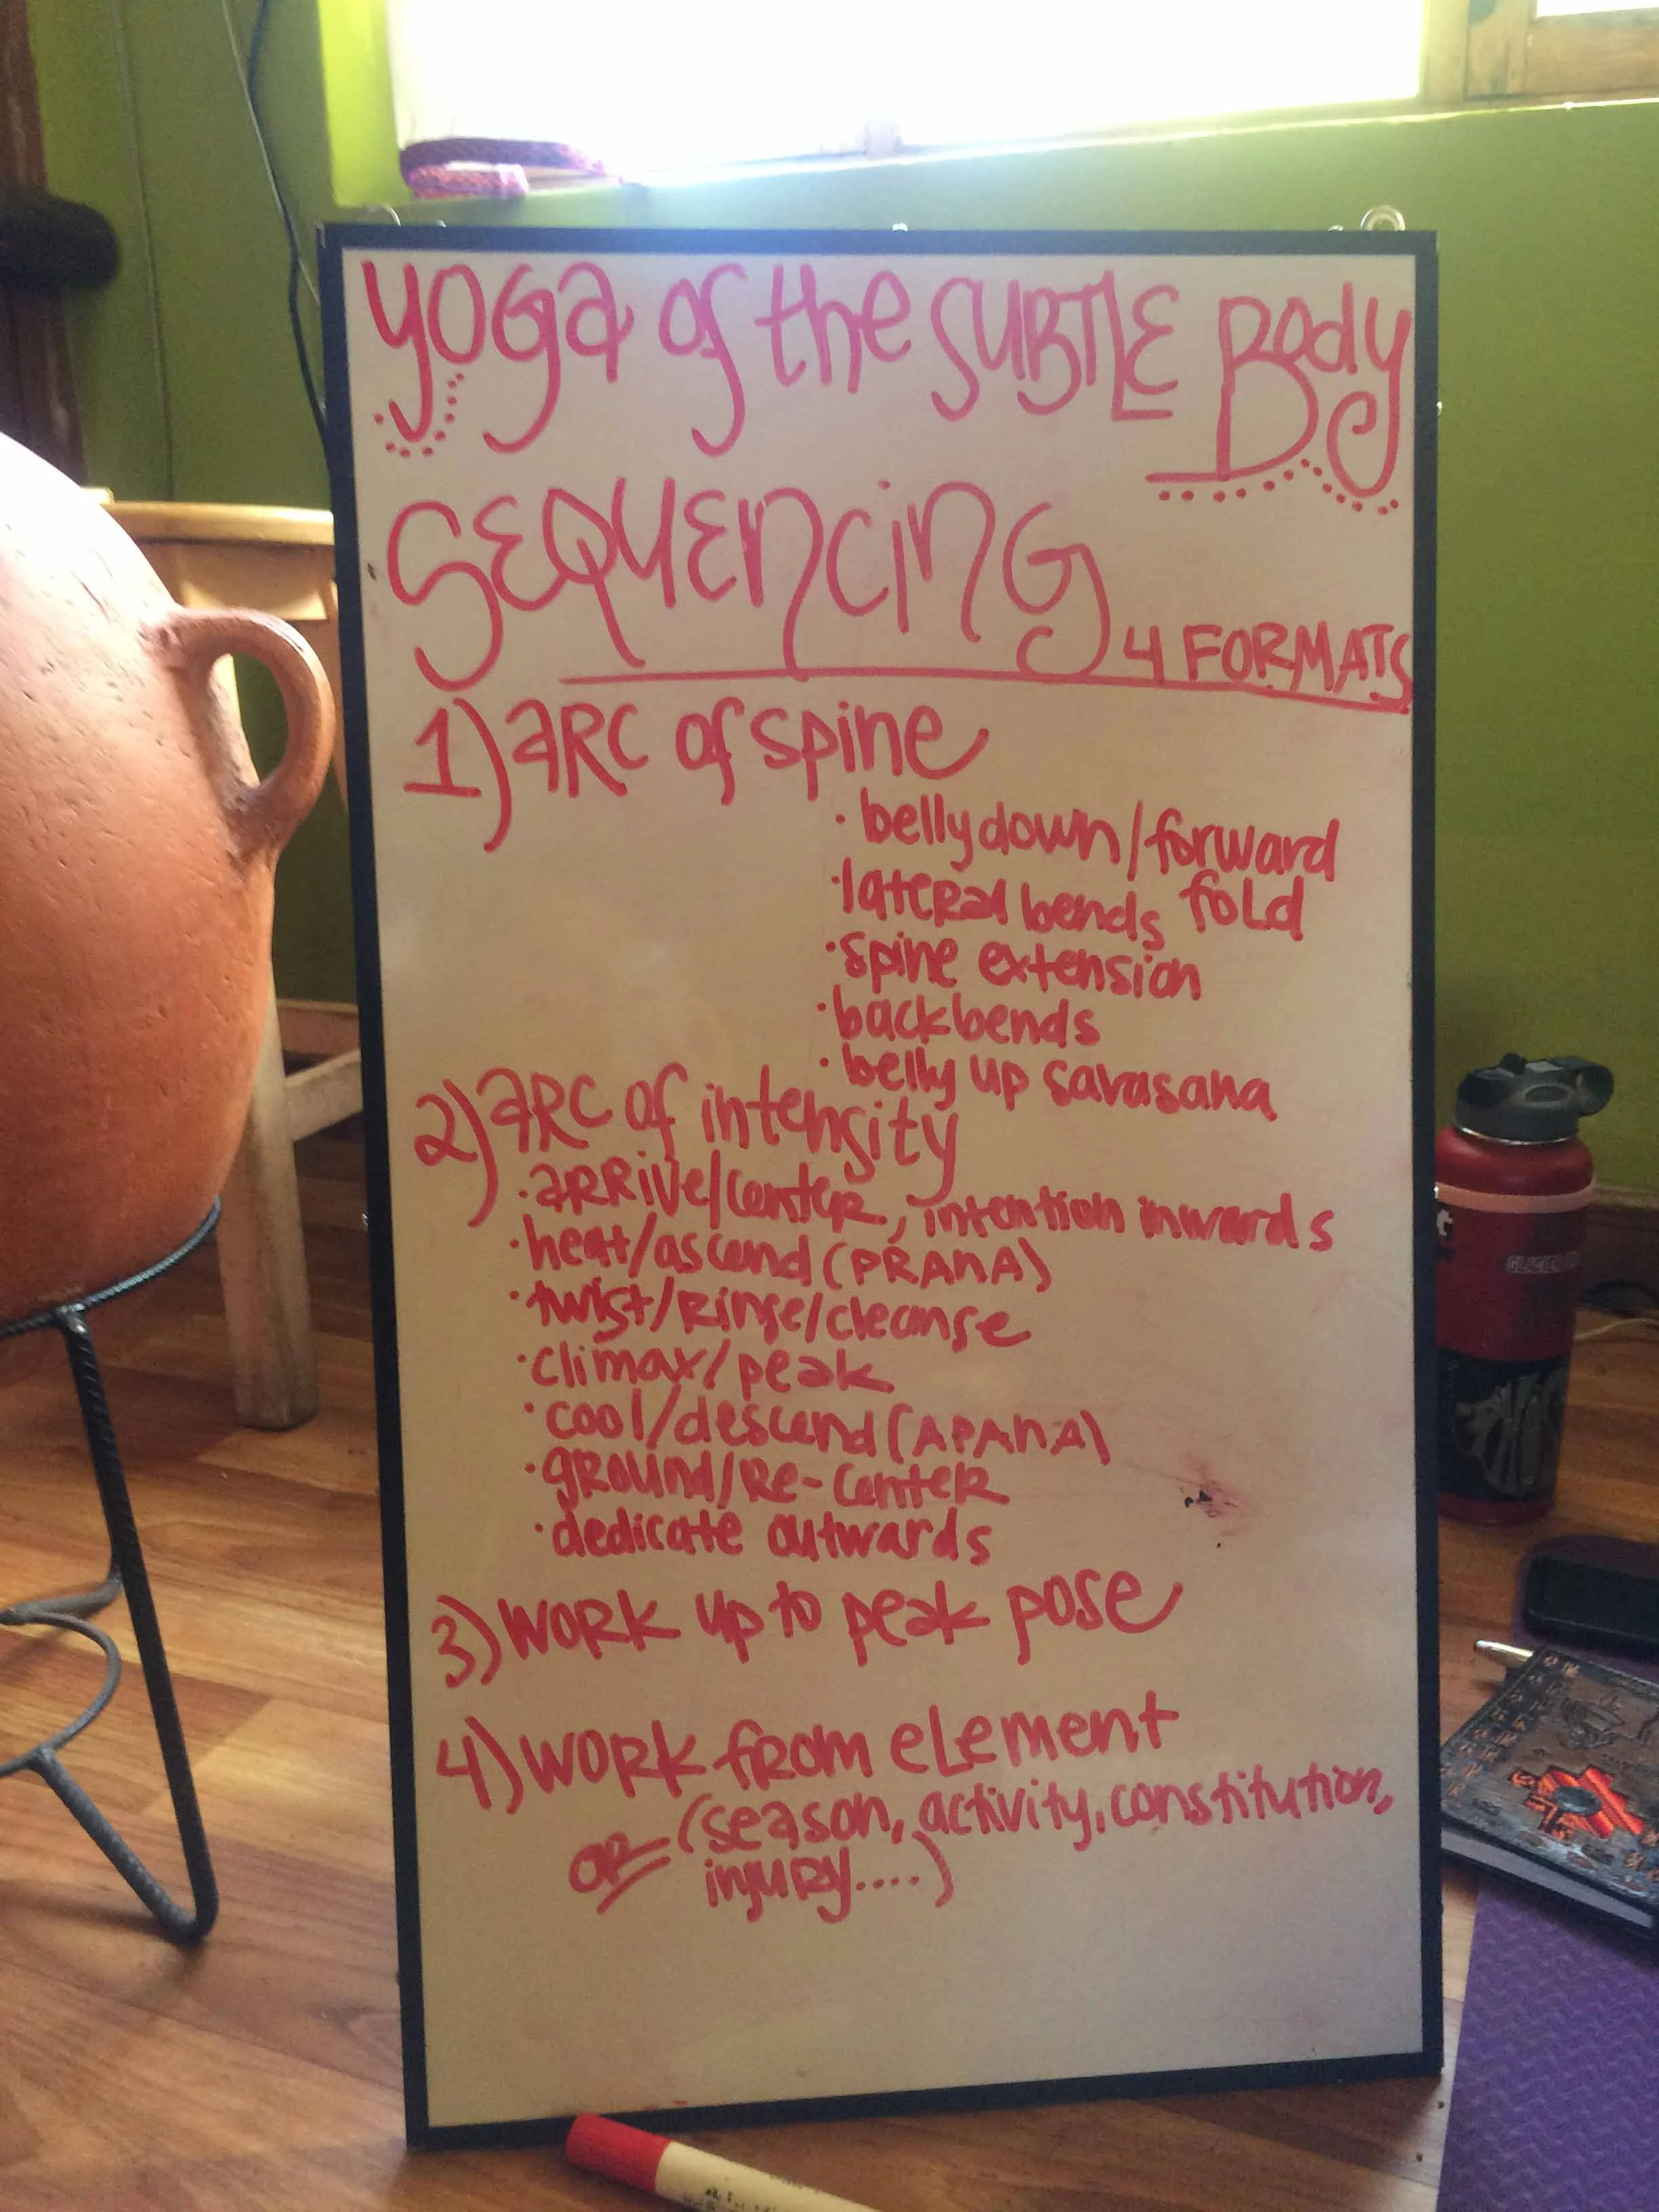 yoga of the SUBTLE Body
SEQUENCING 4 FORMATS
1) aRC of spine
· belly down/forward
fold
· lateral bends
· spine extension
· backbends
· belly up savasana
2) aRC of intensity
· aRRive/center, intention inwards
· heat/ascend (PRANA)
· twist/Rinse/cleanse
· climax/peak
· cool/descend (APANA)
· gRound/Re-center
· dedicate outwards
3) WORK up to peak pose
4) WORK from eLement
OR (season, activity, constitution,
injury....)